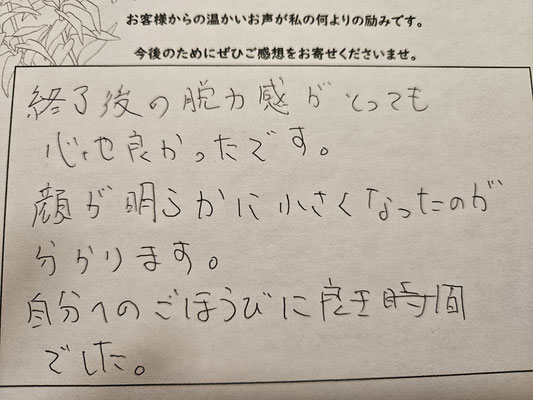 お客様からの温かいお声が私の何よりの励みです。
今後のためにぜひご感想をお寄せくださいませ。
終了後の脱力感がとっても
心地良かったです。
顔が明らかに小さくなったのが
分かります。
自分へのごほうびに良き時間
でした。